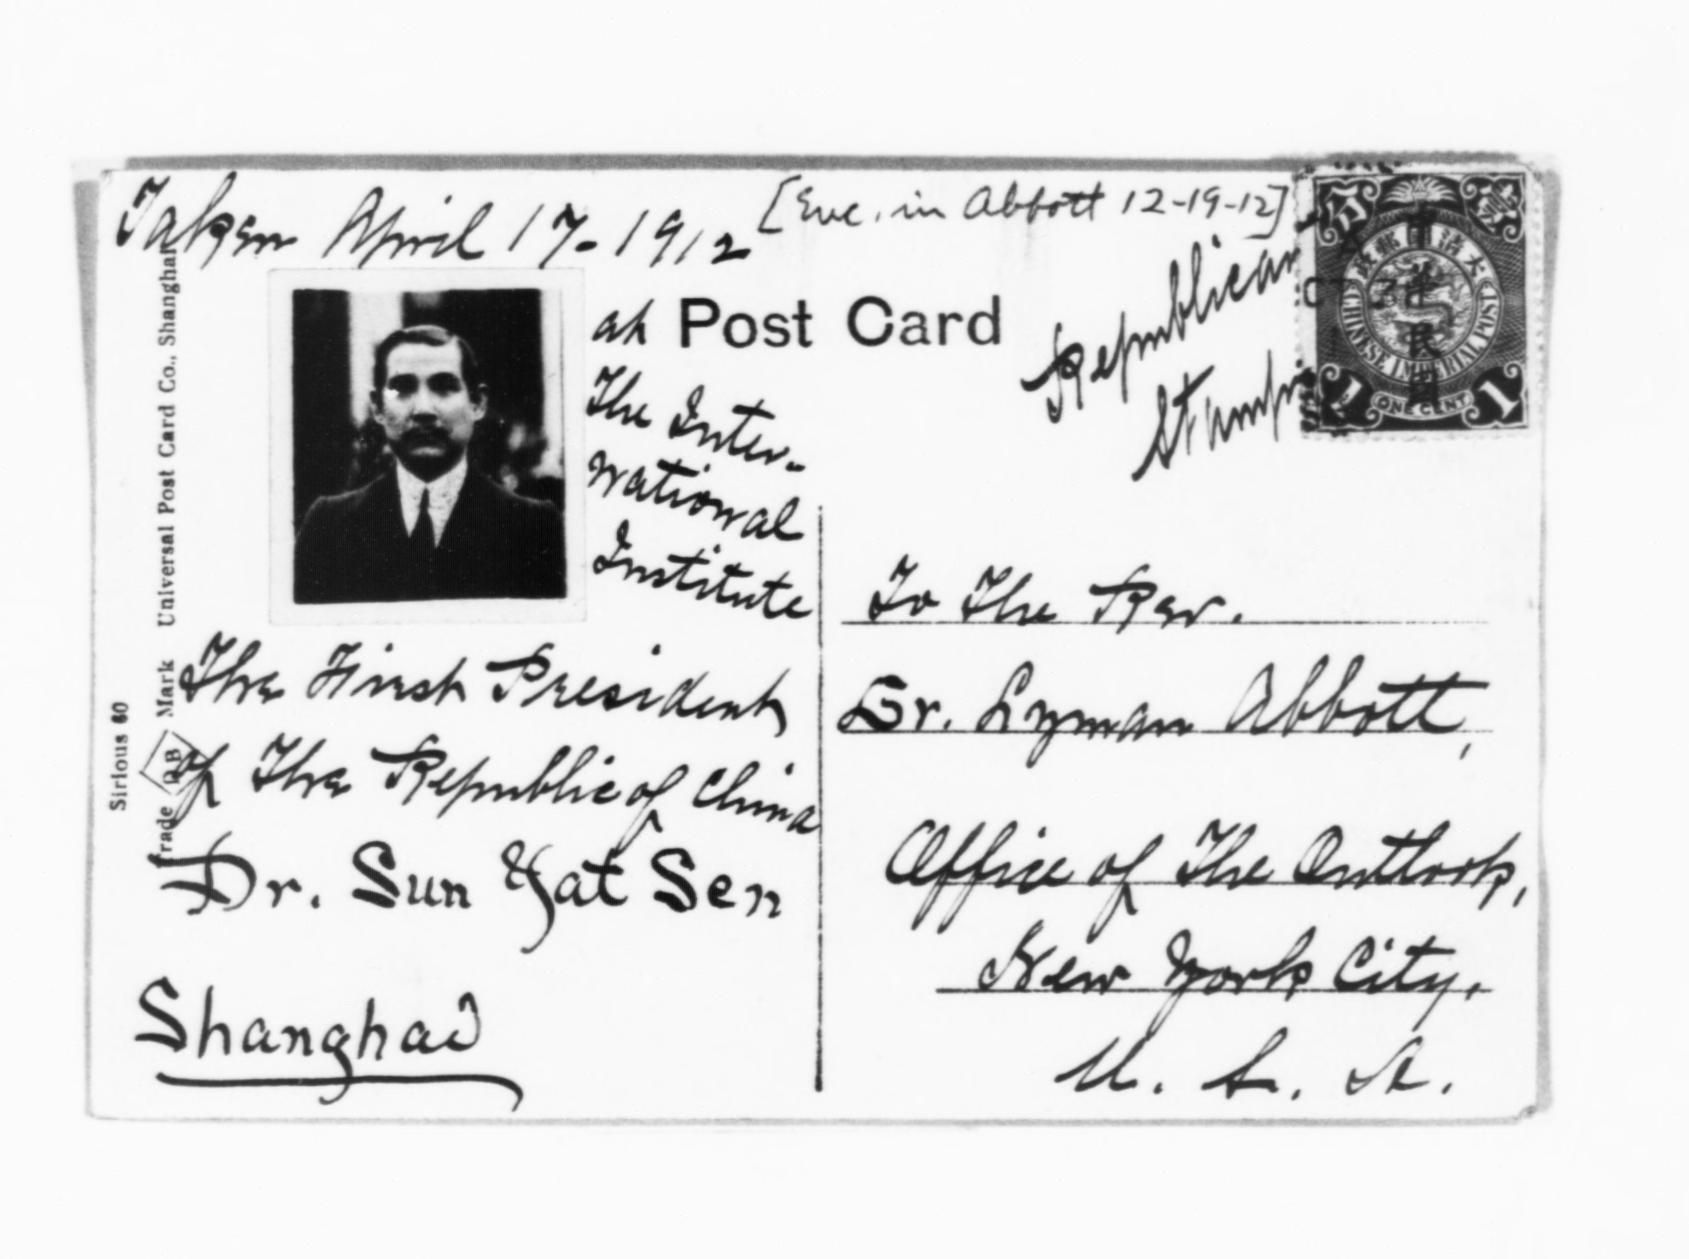 Taken April 17-1912
[Enc. in Abbott 12-19-12]
at
The Inter-
national
Institute
Post Card
Republican
Stamp
中華民國
大清國郵政
CHINESE IMPERIAL POST
ONE CENT
1
1
The First President
of The Republic of China
Dr. Sun Yat Sen
Shanghai
To The Rev.
Dr. Lyman Abbott,
Office of The Outlook,
New York City,
U. S. A.
Sirious 60
Trade DB Mark Universal Post Card Co., Shanghai